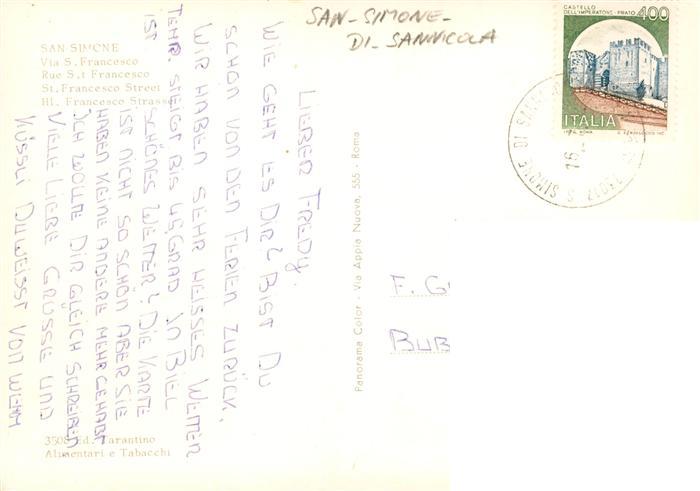 SAN SIMONE
Via S. Francesco
Rue S.t Francesco
St. Francesco Street
Hl. Francesco Strasse
SAN-SIMONE-
DI-SANNICOLA
CASTELLO
DELL'IMPERATORE-PRATO 400
ITALIA
16
LIEBER FREDY.
WIE GEHT ES DIR? BIST DU
SCHÖN VON DEN FERIEN ZURÜCK,
WIR HABEN SEHR HEISSES WETTER
TEMP. STEIGT BIS 45 GRAD IN BIEL
IST SCHÖNES WETTER? DIE KARTE
IST NICHT SO SCHÖN ABER SIE
HABEN KEINE ANDERE MEHR GEHABT
ICH WOLLTE DIR GLEICH SCHREIBEN
VIELE LIEBE GRÜSSE UND
KÜSSLI DU WEISST VON WEMM
Panorama Color - Via Appia Nuova, 555 - Roma
F. G
BUB
3508 Ed. Tarantino
Alimentari e Tabacchi